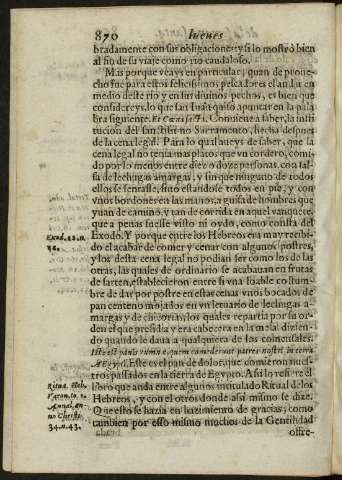 870 Iueues
bradamente con sus obligaciones: y si lo mostrò bien
al fin de su viaje como rio caudaloso.
Mas porque veays en particular, quan de proue-
cho fue para estos felicissimos pescadores el andar en
medio deste rio y en sus diuinos pechos, es bien que
considereys, lo que san Iuã quiso apuntar en la pala
bra siguiente. Et Cœna facta. Conuiene a saber, la insti
tucion del santissimo Sacramento, hecha despues
de la cena legal. Para lo qual aueys de saber, que la
cena legal no tenia mas platos que vn cordero, comi-
do por lo menos entre diez o doze personas, con sal-
sa de lechugas amargas, y sin que ninguno de todos
ellos se sentasse, sino estandose todos en pie, y con
vnos bordones en las manos, a guisa de hombres que
yuan de camino, y tan de corrida en aquel vanquete,
que a penas fuesse visto ni oydo, como consta del
Exodo. Y porque entre los Hebreos era muy recibi-
do el acabar de comer y cenar con algunos postres,
y los desta cena legal no podian ser como los de las
otras, las quales de ordinario se acabauan en frutas
de sarten, establecieron entre si vna loable costum-
bre de dar por postre en estas cenas vnos bocados de
pan cenceño mojados en vn letuario de lechugas a-
margas y de chicorias, los quales repartia por su or-
den el que presidia y era cabecera en la mesa, dizien-
do quando le daua a qualquiera de los comensales.
Iste est panis ærumnæ quem comederunt patres nostri in terra
Aegypti. Este es el pan de dolor, que comieron nues-
tros passados en la tierra de Egypto. Assi lo refiere el
libro que anda entre algunos intitulado Ritual de los
Hebreos, y con el otros donde assi mismo se dize.
Que esto se hazia en hazimiento de gracias; como
tambien por esso mismo muchos de la Gentilidad
ofre-
Exod. 12. n.
Ritua. Heb.
Varon. to. 1.
Annal. an-
no Christi.
34. n. 43.